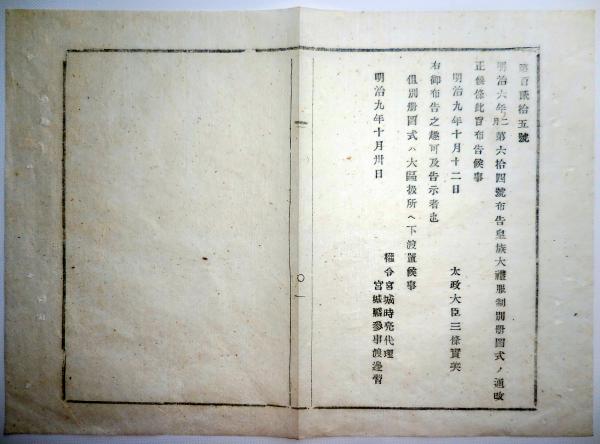 第百貳拾五號
明治六年二月第六拾四號布告皇族大禮服制別册圖式ノ通改
正候條此旨布告候事
明治九年十月十二日
太政大臣三條實美
右御布告之趣可及告示者也
但別册圖式ハ大區扱所ヘ下渡置候事
明治九年十月卅日
權令宮城時亮代理
宮城縣參事渡邊